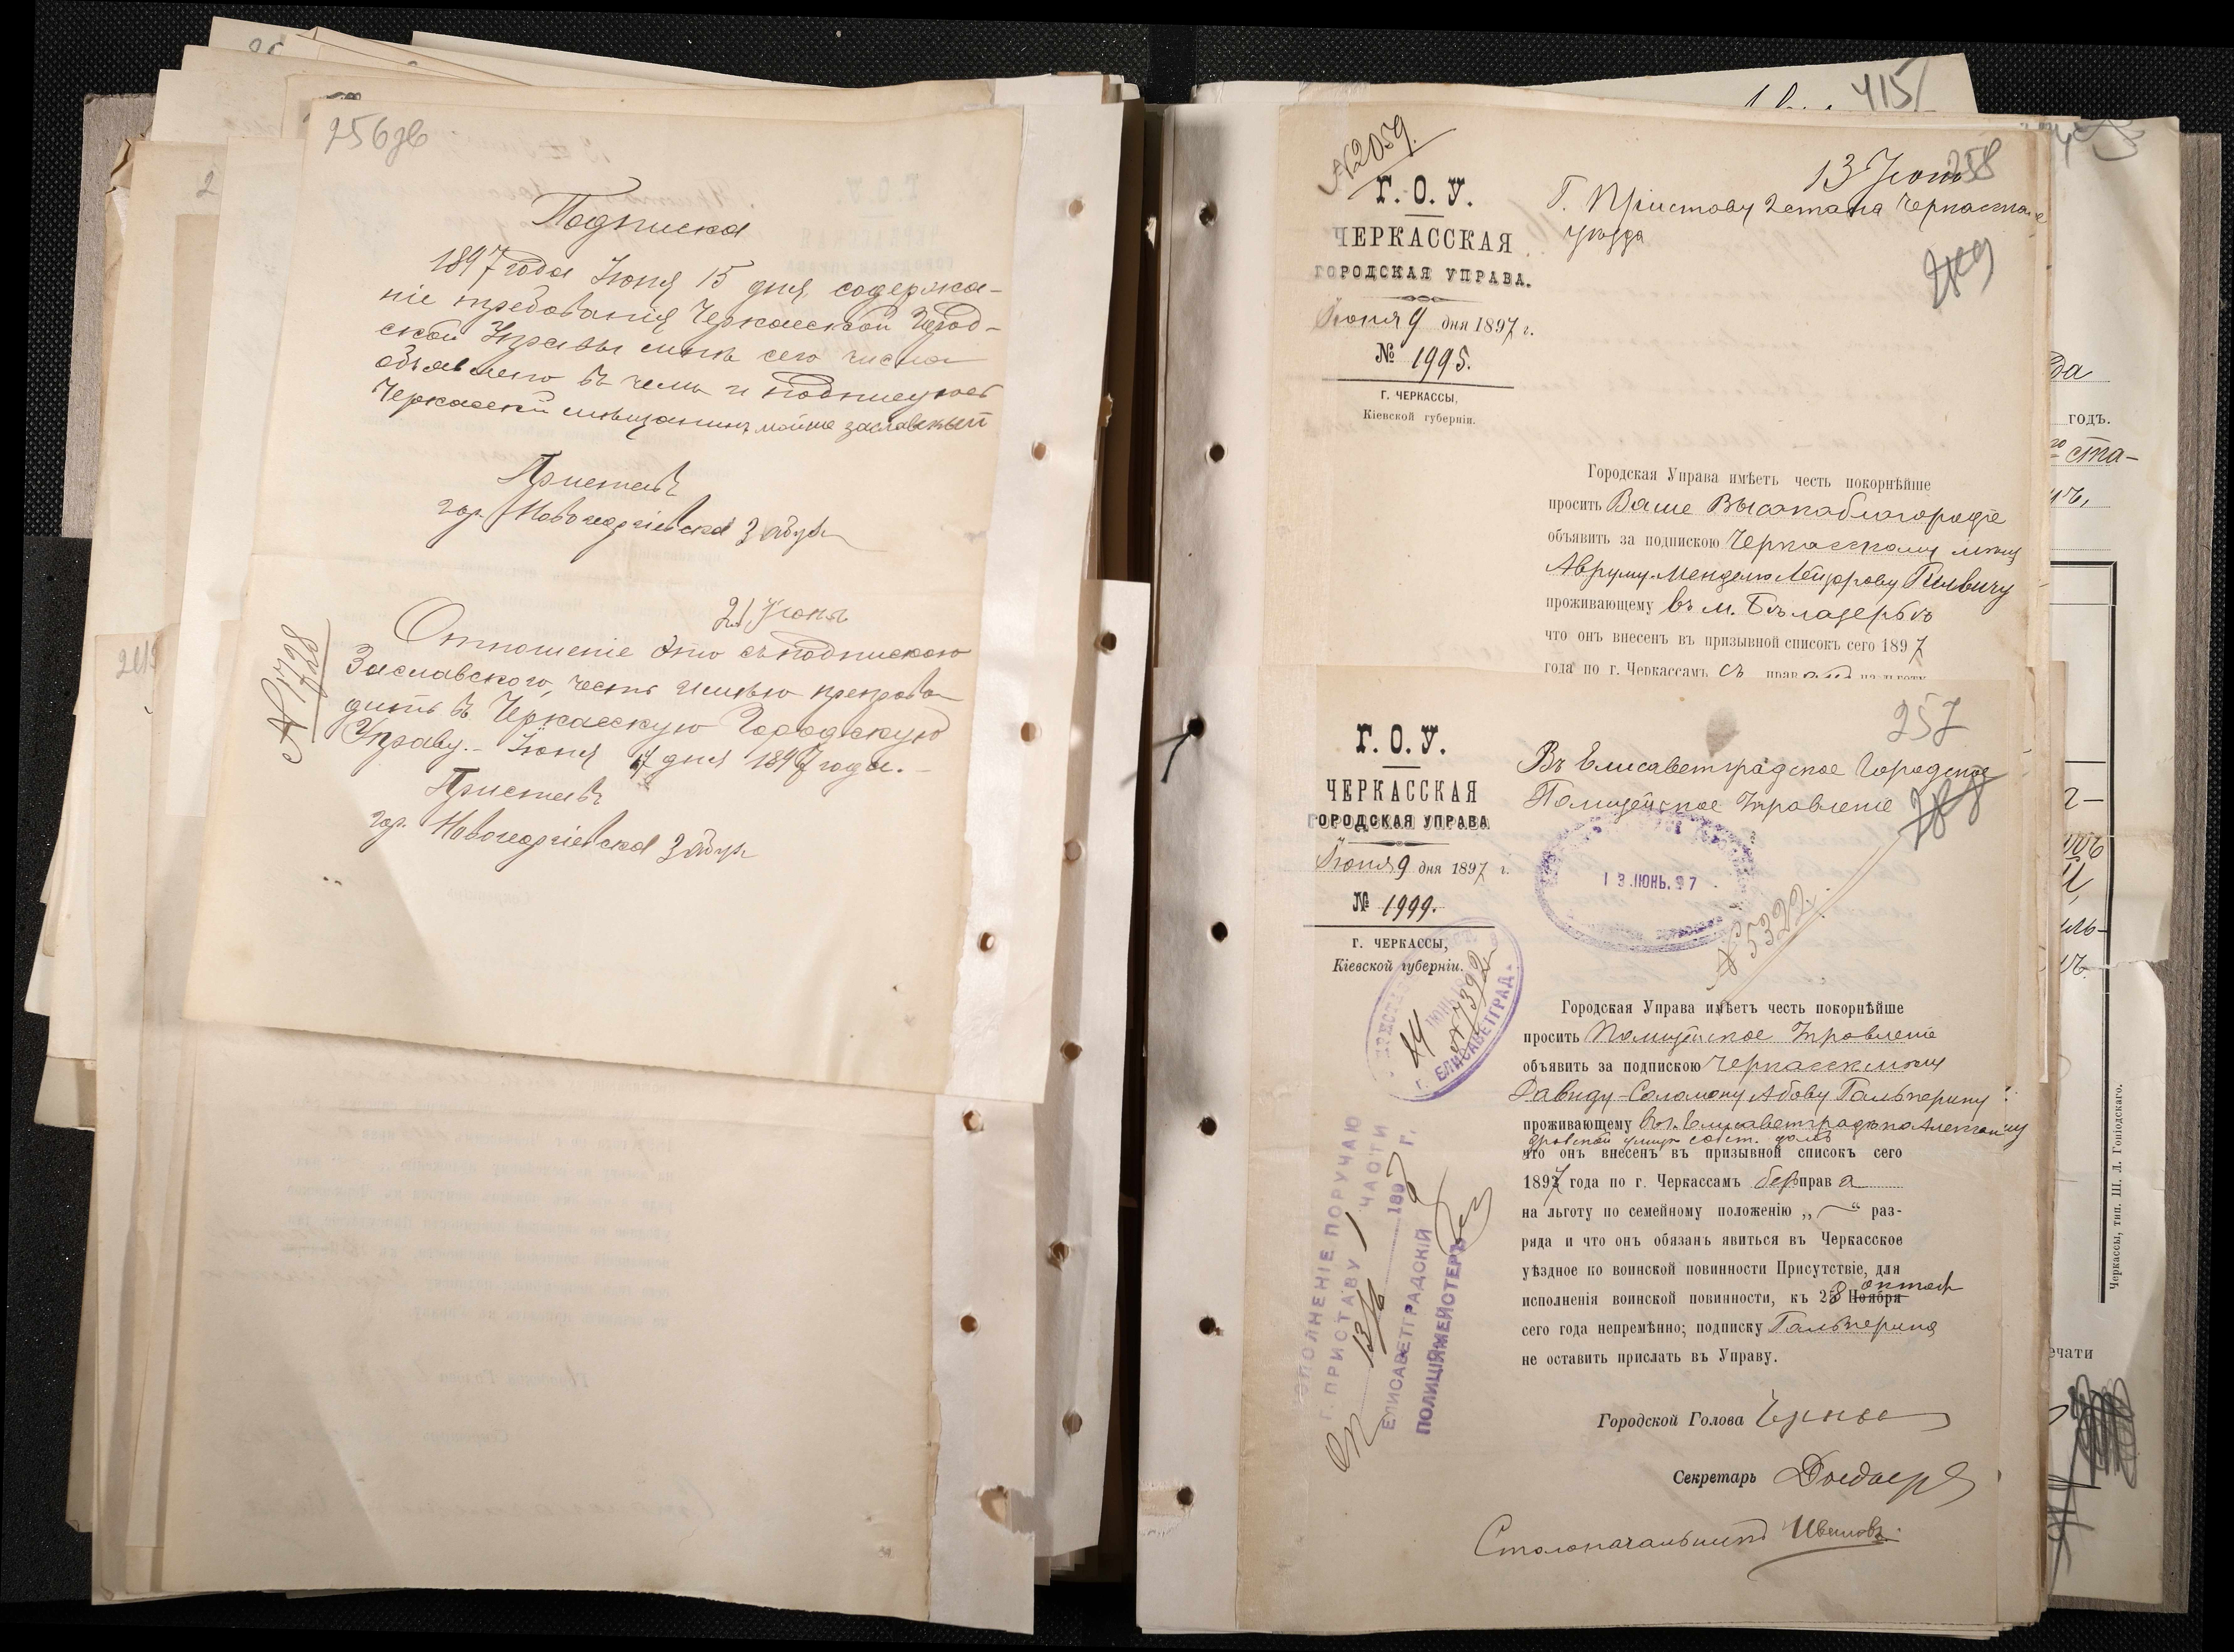 256об
Подписка
1897 года Июня 15 дня, содержа-
ніе требованія Черкасской Город-
ской Управы мнѣ сего числа
объявлено въ чемъ и подписуюсь
Черкасскій мѣщанинъ мойше заславскый
Приставъ
гор. Новогеоргіевска
21 Июня
№ 1728
Отношеніе это съ подпискою
Заславского, честь имѣю препрово-
дить въ Черкасскую Городскую
Управу. - Июня 17 дня 1897 года. -
Приставъ
гор. Новогеоргіевска
415
№ 2059.
13 Июня
258
Г. О. У.
ЧЕРКАССКАЯ
ГОРОДСКАЯ УПРАВА.
Июня 9 дня 1897 г.
№ 1995.
Г. ЧЕРКАССЫ,
Кіевской губерніи.
Г. Приставу 2 стана Черкасскаго
уѣзда
Городская Управа имѣетъ честь покорнѣйше
просить Ваше Высокоблагородіе
объявить за подпискою Черкасскому мѣщ
Авруму-Менделю Лейзорову Гилвичу
проживающему въ м. Бѣлазерьѣ
что онъ внесенъ въ призывной списокъ сего 1897
года по г. Черкассамъ съ прав на льготу
257
Г. О. У.
ЧЕРКАССКАЯ
ГОРОДСКАЯ УПРАВА
Июня 9 дня 1897 г.
№ 1999.
Г. ЧЕРКАССЫ,
Кіевской губерніи.
Въ Елисаветградское Городское
Полицейское Управленіе
13 ІЮНЬ. 97
№ 5322
№ 7392
14
Г. ЕЛИСАВЕТГРАД.
Городская Управа имѣетъ честь покорнѣйше
просить Полицейское Управленіе
объявить за подпискою Черкасск мѣщ
Давиду-Соломону Абову Гальперину
проживающему въ г. Елисаветградѣ по Алексан
дровской улицѣ собст. домъ
что онъ внесенъ въ призывной списокъ сего
1897 года по г. Черкассамъ безъ права
на льготу по семейному положенію „ — “ раз-
ряда и что онъ обязанъ явиться въ Черкасское
уѣздное по воинской повинности Присутствіе, для
исполненія воинской повинности, къ 28 Ноября октяб
сего года непремѣнно; подписку Гальперина
не оставить прислать въ Управу.
Городской Голова
Секретарь
Столоначальникъ Ивановъ
ИСПОЛНЕНІЕ ПОРУЧАЮ
Г. ПРИСТАВУ 1 ЧАСТИ
13/6 1897 Г.
ЕЛИСАВЕТГРАДСКІЙ
ПОЛИЦІЙМЕЙСТЕРЪ
да
годъ.
го ста-
ечати
Черкассы, тип. Ш. Л. Гоніодскаго.